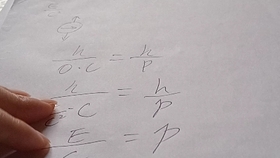 h/0·C = h/p
h/ ·C = h/p
E/C = p